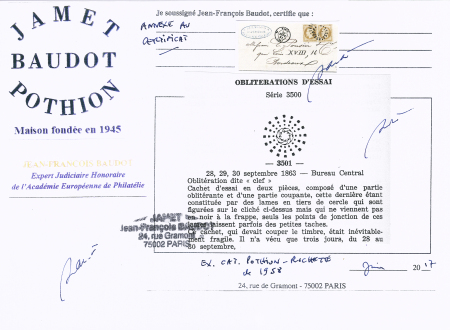 JAMET
BAUDOT
POTHION
Maison fondée en 1945
JEAN-FRANÇOIS BAUDOT
Expert Judiciaire Honoraire
de l'Académie Européenne de Philatélie
Je soussigné Jean-François Baudot, certifie que :
ANNEXE AU
CERTIFICAT
OBLITERATIONS D'ESSAI
Série 3500
— 3501 —
28, 29, 30 septembre 1863 — Bureau Central
Oblitération dite « clef »
Cachet d'essai en deux pièces, composé d'une partie
oblitérante et d'une partie coupante, cette dernière étant
constituée par des lames en tiers de cercle qui sont
figurées sur le cliché ci-dessus mais qui ne viennent pas
en noir à la frappe, seuls les points de jonction de ces
lames laissent parfois des petites taches.
Ce cachet, qui devait couper le timbre, était inévitable-
ment fragile. Il n'a vécu que trois jours, du 28 au
30 septembre.
JAMET
Jean-François Baudot
24, rue Gramont
75002 PARIS
EX. CAT. POTHION - ROCHETTE
de 1958
Juin 2017
24, rue de Gramont - 75002 PARIS